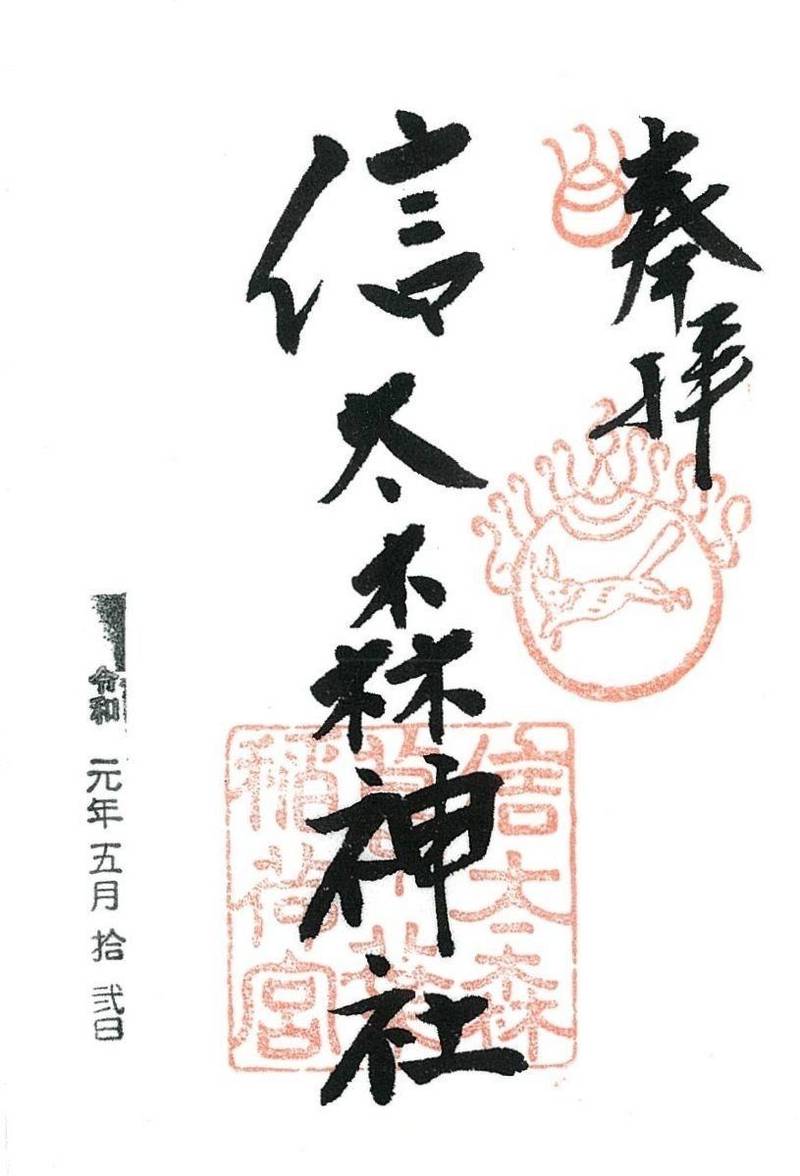 奉拝
信太森神社
信太森
葛葉
稲荷宮
令和元年五月拾弐日